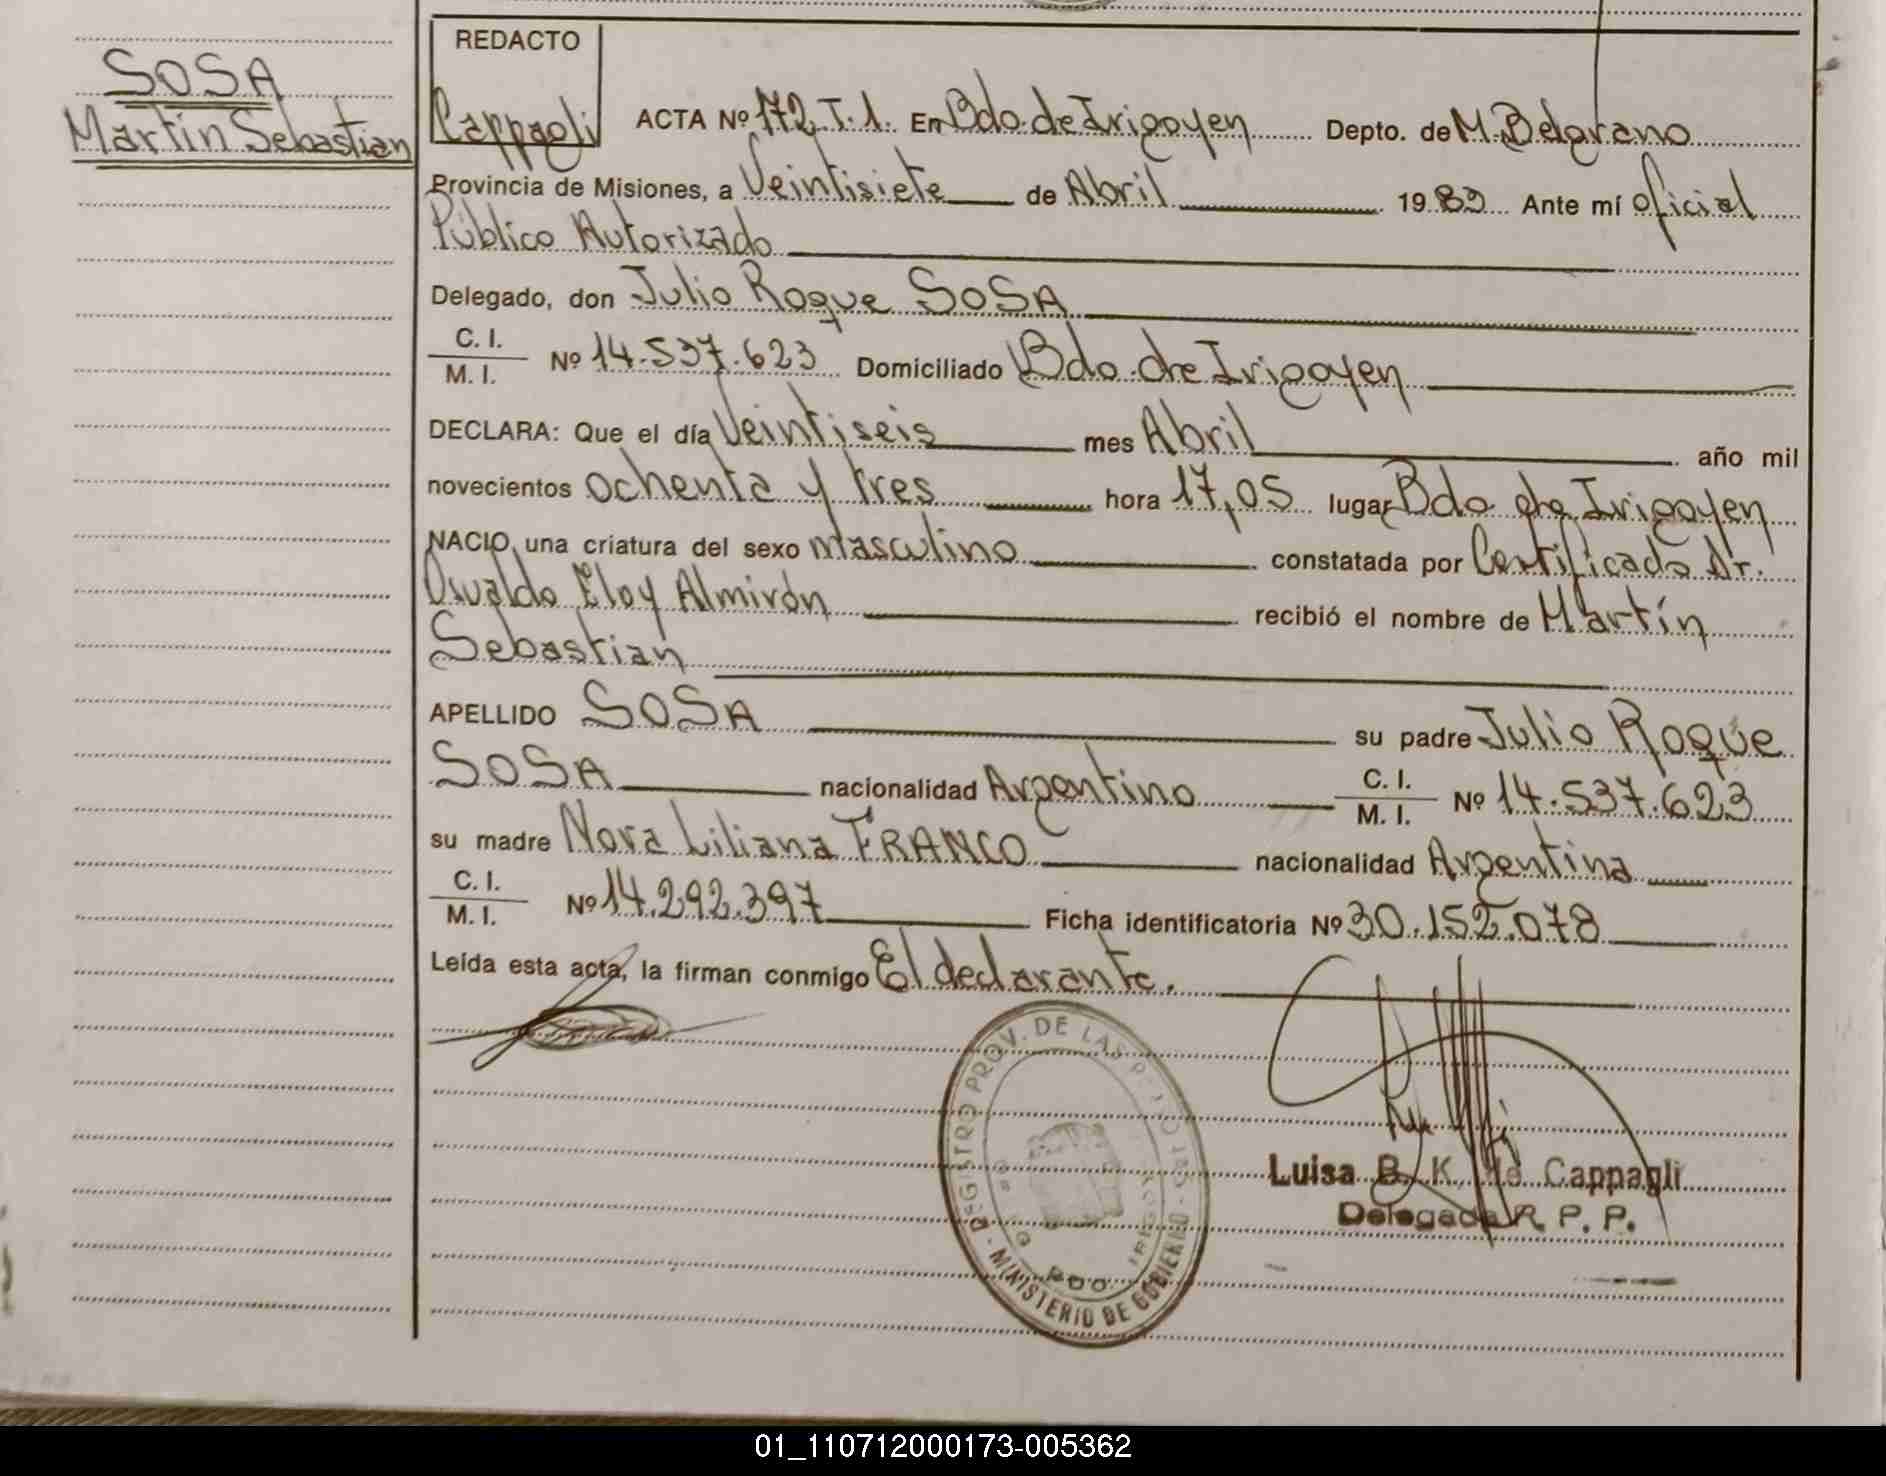 SOSA
Martín Sebastian
REDACTO
Cappagli
ACTA Nº 172 T.1. En Bdo. de Irigoyen Depto. de M. Belgrano
Provincia de Misiones, a Veintisiete de Abril 1983 Ante mí oficial
Público Autorizado
Delegado, don Julio Roque SOSA
C. I.
M. I. Nº 14.537.623 Domiciliado Bdo. de Irigoyen
DECLARA: Que el día Veintiseis mes Abril año mil
novecientos ochenta y tres hora 17,05 lugar Bdo de Irigoyen
NACIO, una criatura del sexo masculino constatada por Certificado Dr.
Osvaldo Eloy Almirón recibió el nombre de Martín
Sebastian
APELLIDO SOSA su padre Julio Roque
SOSA nacionalidad Argentino C. I.
M. I. Nº 14.537.623
su madre Nora Liliana FRANCO nacionalidad Argentina
C. I.
M. I. Nº 14.292.397 Ficha identificatoria Nº 30.152.078
Leída esta acta, la firman conmigo El declarante.
REGISTRO PROV. DE LAS
MINISTERIO DE GOBIERNO
BDO.
Luisa B. K. de Cappagli
Delegada R. P. P.
01_110712000173-005362